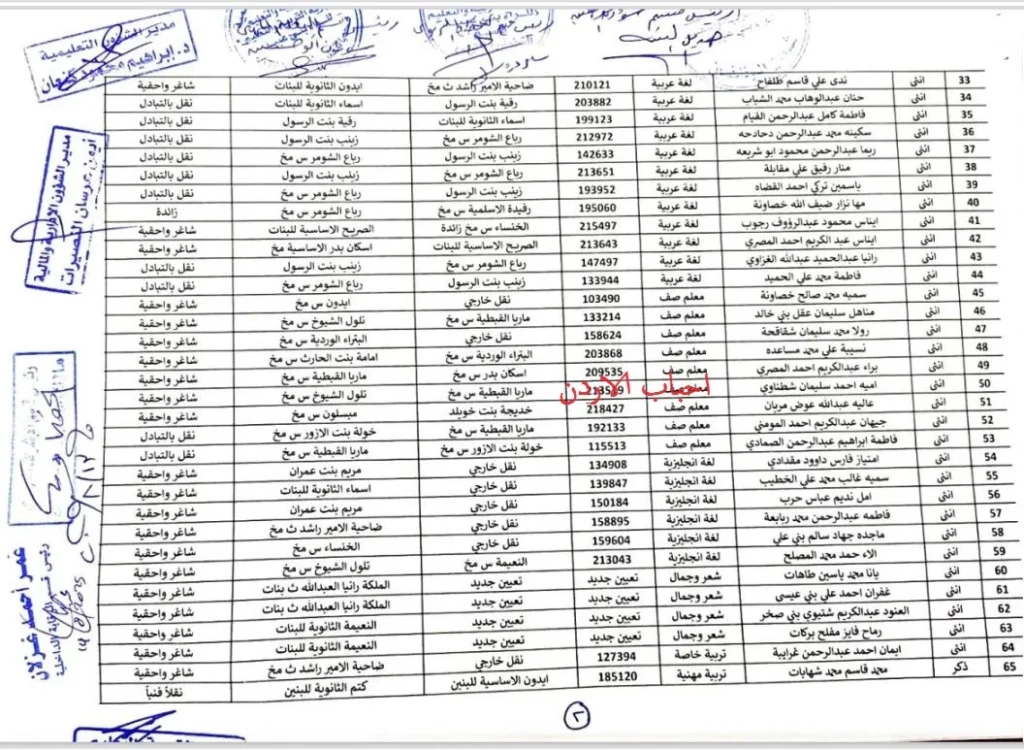 مدير الشؤون التعليمية
33 انثى ندى علي قاسم طلفاح لغة عربية 210121 ضاحية الامير راشد ث مخ ايدون الثانوية للبنات شاغر واحقية
34 انثى حنان عبدالوهاب محمد الشياب لغة عربية 203882 رقية بنت الرسول اسماء الثانوية للبنات نقل بالتبادل
35 انثى فاطمة كامل عبدالرحمن القيام لغة عربية 199123 اسماء الثانوية للبنات رقية بنت الرسول نقل بالتبادل
36 انثى سكينه محمد عبدالرحمن دحادحه لغة عربية 212972 رباع الشومر س مخ زينب بنت الرسول نقل بالتبادل
37 انثى ريما عبدالرحمن محمود ابو شريعه لغة عربية 142633 زينب بنت الرسول رباع الشومر س مخ نقل بالتبادل
38 انثى منار رفيق علي مقابلة لغة عربية 213651 رباع الشومر س مخ زينب بنت الرسول نقل بالتبادل
39 انثى ياسمين تركي احمد القضاه لغة عربية 193952 زينب بنت الرسول رباع الشومر س مخ نقل بالتبادل
40 انثى مها نزار ضيف الله خصاونة لغة عربية 195060 رفيدة الاسلمية س مخ رباع الشومر س مخ زائدة
41 انثى ايناس محمود عبدالرؤوف رجوب لغة عربية 215497 الخنساء س مخ زائدة الصريح الاساسية للبنات شاغر واحقية
42 انثى ايناس عبد الكريم احمد المصري لغة عربية 213643 الصريح الاساسية للبنات اسكان بدر الاساسية مخ شاغر واحقية
43 انثى رانيا عبدالحميد عبدالله الغزاوي لغة عربية 147497 رباع الشومر س مخ زينب بنت الرسول نقل بالتبادل
44 انثى فاطمة محمد علي الحميد لغة عربية 133944 زينب بنت الرسول رباع الشومر س مخ نقل بالتبادل
45 انثى سميه محمد صالح خصاونة معلم صف 103490 نقل خارجي ايدون س مخ شاغر واحقية
46 انثى مناهل سليمان عقل بني خالد معلم صف 133214 ماريا القبطية س مخ تلول الشيوخ س مخ شاغر واحقية
47 انثى رولا محمد سليمان شقاقحة معلم صف 158624 نقل خارجي البتراء الوردية س مخ شاغر واحقية
48 انثى نسيبة علي محمد مساعده معلم صف 203868 البتراء الوردية س مخ امامة بنت الحارث س مخ شاغر واحقية
49 انثى براء عبدالكريم احمد المصري معلم صف 209535 اسكان بدر س مخ ماريا القبطية س مخ شاغر واحقية
50 انثى اميه احمد سليمان شطناوي معلم صف ماريا القبطية س مخ تلول الشيوخ س مخ شاغر واحقية
احباب الاردن
51 انثى عاليه عبدالله عوض مريان معلم صف 218427 خديجة بنت خويلد ميسلون س مخ شاغر واحقية
52 انثى جيهان عبدالكريم احمد المومني معلم صف 192133 ماريا القبطية س مخ خولة بنت الازور س مخ نقل بالتبادل
53 انثى فاطمة ابراهيم عبدالرحمن الصمادي معلم صف 115513 خولة بنت الازور س مخ ماريا القبطية س مخ نقل بالتبادل
54 انثى امتياز فارس داوود مقدادي لغة انجليزية 134908 نقل خارجي مريم بنت عمران شاغر واحقية
55 انثى سميه غالب محمد علي الخطيب لغة انجليزية 139847 نقل خارجي اسماء الثانوية للبنات شاغر واحقية
56 انثى امل نديم عباس حرب لغة انجليزية 150184 نقل خارجي مريم بنت عمران شاغر واحقية
57 انثى فاطمه عبدالرحمن محمد ربابعة لغة انجليزية 158895 نقل خارجي ضاحية الامير راشد ث مخ شاغر واحقية
58 انثى ماجده جهاد سالم بني علي لغة انجليزية 159604 نقل خارجي الخنساء س مخ شاغر واحقية
59 انثى الاء حمد محمد المصلح لغة انجليزية 213043 النعيمة س مخ تلول الشيوخ س مخ شاغر واحقية
60 انثى يانا محمد ياسين طاهات شعر وجمال تعيين جديد تعيين جديد الملكة رانيا العبدالله ث بنات شاغر واحقية
61 انثى غفران احمد علي بني عيسى شعر وجمال تعيين جديد تعيين جديد الملكة رانيا العبدالله ث بنات شاغر واحقية
62 انثى العنود عبدالكريم شتيوي بني صخر شعر وجمال تعيين جديد تعيين جديد النعيمة الثانوية للبنات شاغر واحقية
63 انثى رماح فايز مفلح بركات شعر وجمال تعيين جديد تعيين جديد النعيمة الثانوية للبنات شاغر واحقية
64 انثى ايمان احمد عبدالرحمن غرايبة تربية خاصة 127394 نقل خارجي ضاحية الامير راشد ث مخ شاغر واحقية
65 ذكر محمد قاسم محمد شهابات تربية مهنية 185120 ايدون الاساسية للبنين كتم الثانوية للبنين نقلاً فنياً
مدير الشؤون الادارية والمالية
٢